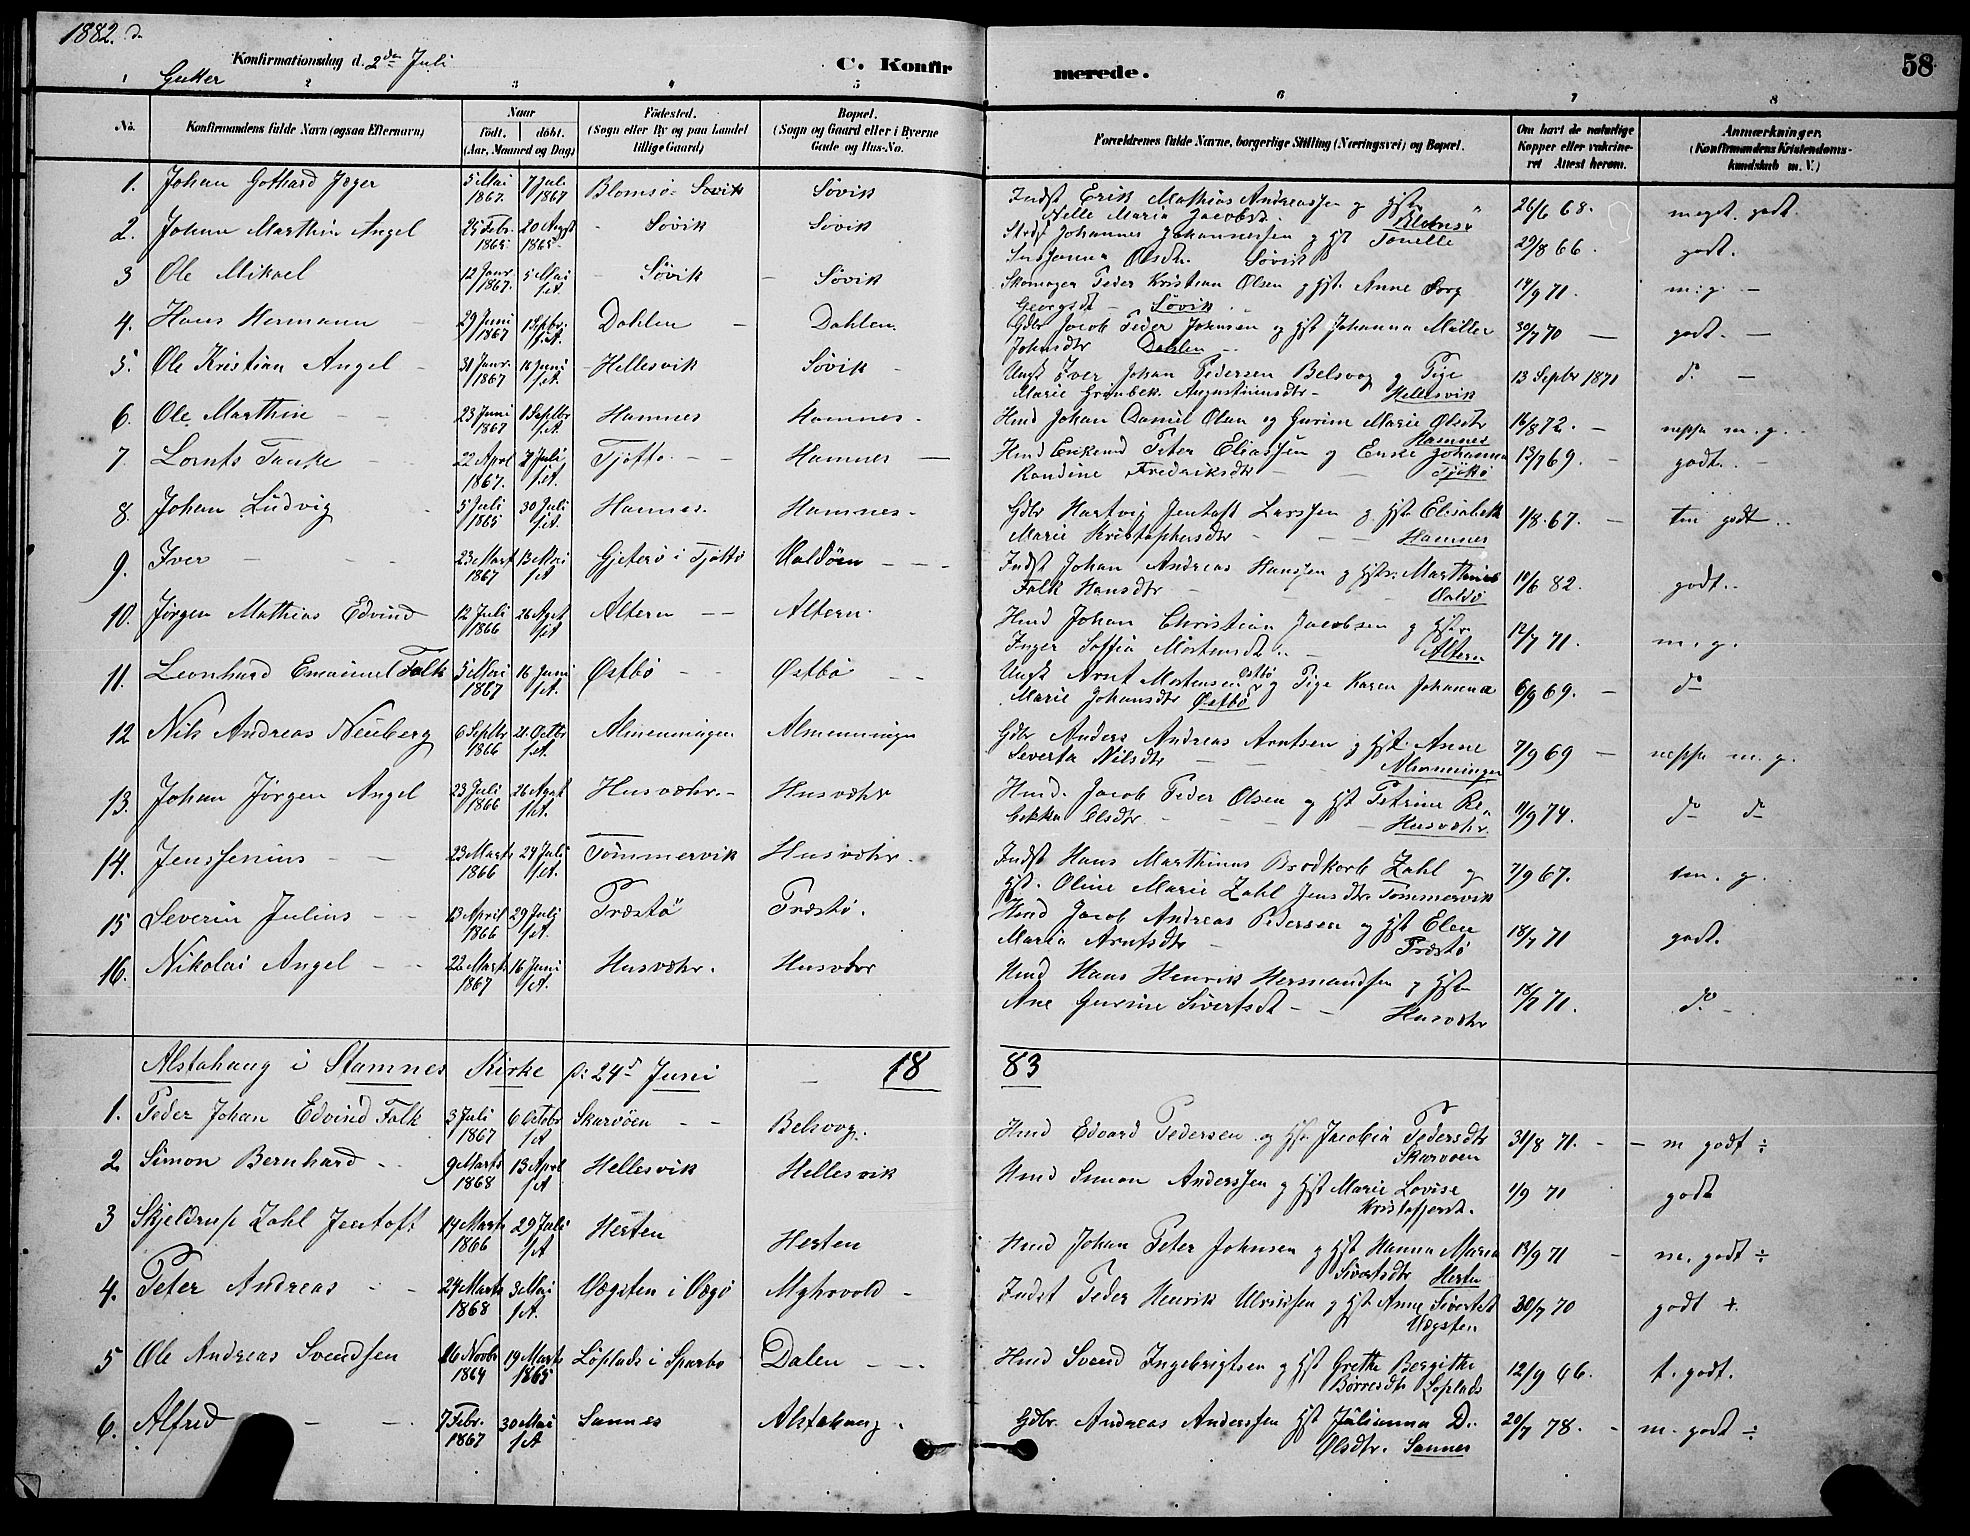 1882.
Konfirmationsdag d. 2den Juli
C. Konfir merede.
58
1 Gutter 2 3 4 5 6 7 8
No. Konfirmandens fulde Navn (ogsaa Efternavn) Naar födt. döbt. (Aar, Maaned og Dag) Födested. (Sogn eller By og paa Landet tillige Gaard) Bopæl. (Sogn og Gaard eller i Byerne Gade og Hus-No. Forældrenes fulde Navne, borgerlige Stilling (Næringsvei) og Bopæl. Om havt de naturlige Kopper eller vakcineret Attest herom. Anmærkninger. (Konfirmandens Kristendomskundskab m. V.)
1. Johan Gothard Jæger 5 Mai 1867. 7 Juli 1867 Blomsö- Søvik Søvik Indst Erik Mathias Andreassen g Hst Nelle Maria Jacobsd. Blomsö 26/6 68. meget godt.
2. Johan Marthin Angel 25 Febr. 1865 20 Augst 1865 Søvik Søvik Johannes Johannessen g Hst Tonelle Susanna Olsdtr. Søvik 29/8 66. godt.
3 Ole Mikael 12 Janr. 1867. 5 Mai s.A. Søvik Søvik Skomager Peder Kristian Olsen g Hst. Anne Dorg Georgsdt - Søvik 14/9 71. m. g. -
4. Hans Hermann 29 Juni 1867 1 Septbr. s.A. Dahlen Dahlen. Gdbr Jacob Peder Johnsen og Hst Johanna Müller Johnsdtr Dahlen 30/7 70 godt. -
5. Ole Kristian Angel 31 Janr. 1867 16 Juni s.A. Hellesvik Søvik Ungk Iver Johan Pedersen Belsvog g Pige Marie Grönbek Augustinusdtr - Hellesvik 13 Septbr 1871 do -
6. Ole Marthin 23 Juni 1867 1 Septbr s.A. Hamnes Hamnes. Hmd Johan Daniel Olsen og Gurine Marie Olsdtr Hamnes 16/8 72. neppe m. g.
7. Lornts Tanke 22 Aprl 1867. 7 Juli s.A. Tjøtta Hamnes Hmd Enkemd Peter Eliassen g Enke Johanna Randine Fredriksdtr Tjöttö 13/7 69. godt.
8. Johan Ludvig 5 Juli 1865 30 Juli s.A. Hamnes. Hamnes- Gdbr Hartvig Jentoft Larssen g Hst Elisabeth Marie Kristophersdtr - Hamnes 1/8. 67. tm godt
9. Iver 23 Mart 1867 13 Mai s.A. Gjeterø i Tjøttø Valdöen Indst Johan Andreas Hanssen g Hstr. Marthine Falk Hansdtr Valdö 10/6 82. godt.
10. Jørgen Mathias Edvind 12 Juli 1866 26 Agst s.A. Altern Altern. Hmd Johan Christian Jacobsen g Hstr Inger Soffia Mortensdt. Altern 12/7 71. m. g.
11. Leonhard Emanuel Falk 5 Mai 1867 16 Juni s.A. Østbö Østbö Ungk Arnt Mortensen Østbö g Pige Karen Johanna Marie Johansdtr Østbö 6/9 69. - do
12 Nils Andreas Neuberg 6 Septbr 1866 21 Octbr s.A. Almenningen Almenningen Gdbr Anders Andreas Arntsen g Hst. Anne Severta Nilsdtr Almenningen 7/9 69 - neppe m. g.
13. Johan Jörgen Angel 23 Juli 1866 26 Agst s.A. Husvæhr. Husvæhr Hmd. Jacob Peder Olsen g Hst Petrine Rebekka Olsdtr Husvæhr 11/9 74. do do
14. Jenssenius 23 Marts 1866 24 Juli s.A. Tömmervik Husvæhr. Indst Hans Marthinus Brodkorb Zahl g Hst. Oline Marie Zahl Jensdtr Tömmervik 7/9 67. tm. g.
15 Severin Julius 13 April 1866 29 Juli s.A. Præstö Præstö. Hmd Jacob Andreas Pedersen g Hst Elen Maria Arntsdtr Præstö 18/7 71 godt.
16. Nikolai Angel 22 Marts 1867 16 Juni s.A. Husvæhr. Husvær Hmd Hans Henrik Hermandsen g Hst Ane Gurine Sivertsdt - - Husvæhr 18/7 71. do -
Alstahaug i Stamnes Kirke d: 24d Juni 18 83
1. Peder Johan Edvind Falk 3 Juli 1867 6 Octobr s.A Skarvöen Belsvog. Hmd Edvard Pedersen g Hst Jacobia Pedersdtr Skarvöen 31/8 71. - m godt ÷
2. Simon Bernhard 9 Marts 1868 13 Aprl s.A Hellesvik Hellesvik Hmd Simon Anderssen g Hst Marie Lovise Kristoffersdt. 1/9 71 godt
3 Skjeldrup Zahl Jentoft 17 Marts 1866 29 Juli s.A Hesten Hesten Hmd Johan Peter Johnsen g Hst Hanna Maria Sivertsdtr Hesten 13/9 71 - m. godt ÷
4. Peter Andreas 24 Marts 1868 3 Mai s.A. Vægsten i Vegö Myhrvold - Indst Peder Henrik Ulriksen g Hst Anne Sivertsd Vægsten 30/7 70 godt +
5 Ole Andreas Svendsen 16 Novbr 1864 19 Marts 1865 Löplads i Sparbo Dalen Hmd Svend Ingebrigtsen g Hst Grethe Bergithe Börresdtr Löplads 12/9 66. t. godt.
6. Alfred 7 Febr. 1867 30 Mai s.A Sannes Alstahaug. Gdbr. Andreas Anderssen Hst Julianna D. Olsdtr. Sannes 20/7 78. - m. godt ÷